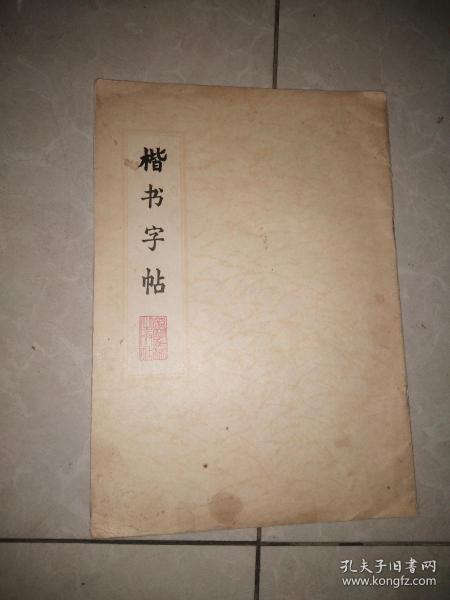 楷书字帖
孔夫子旧书网
www.kongfz.com